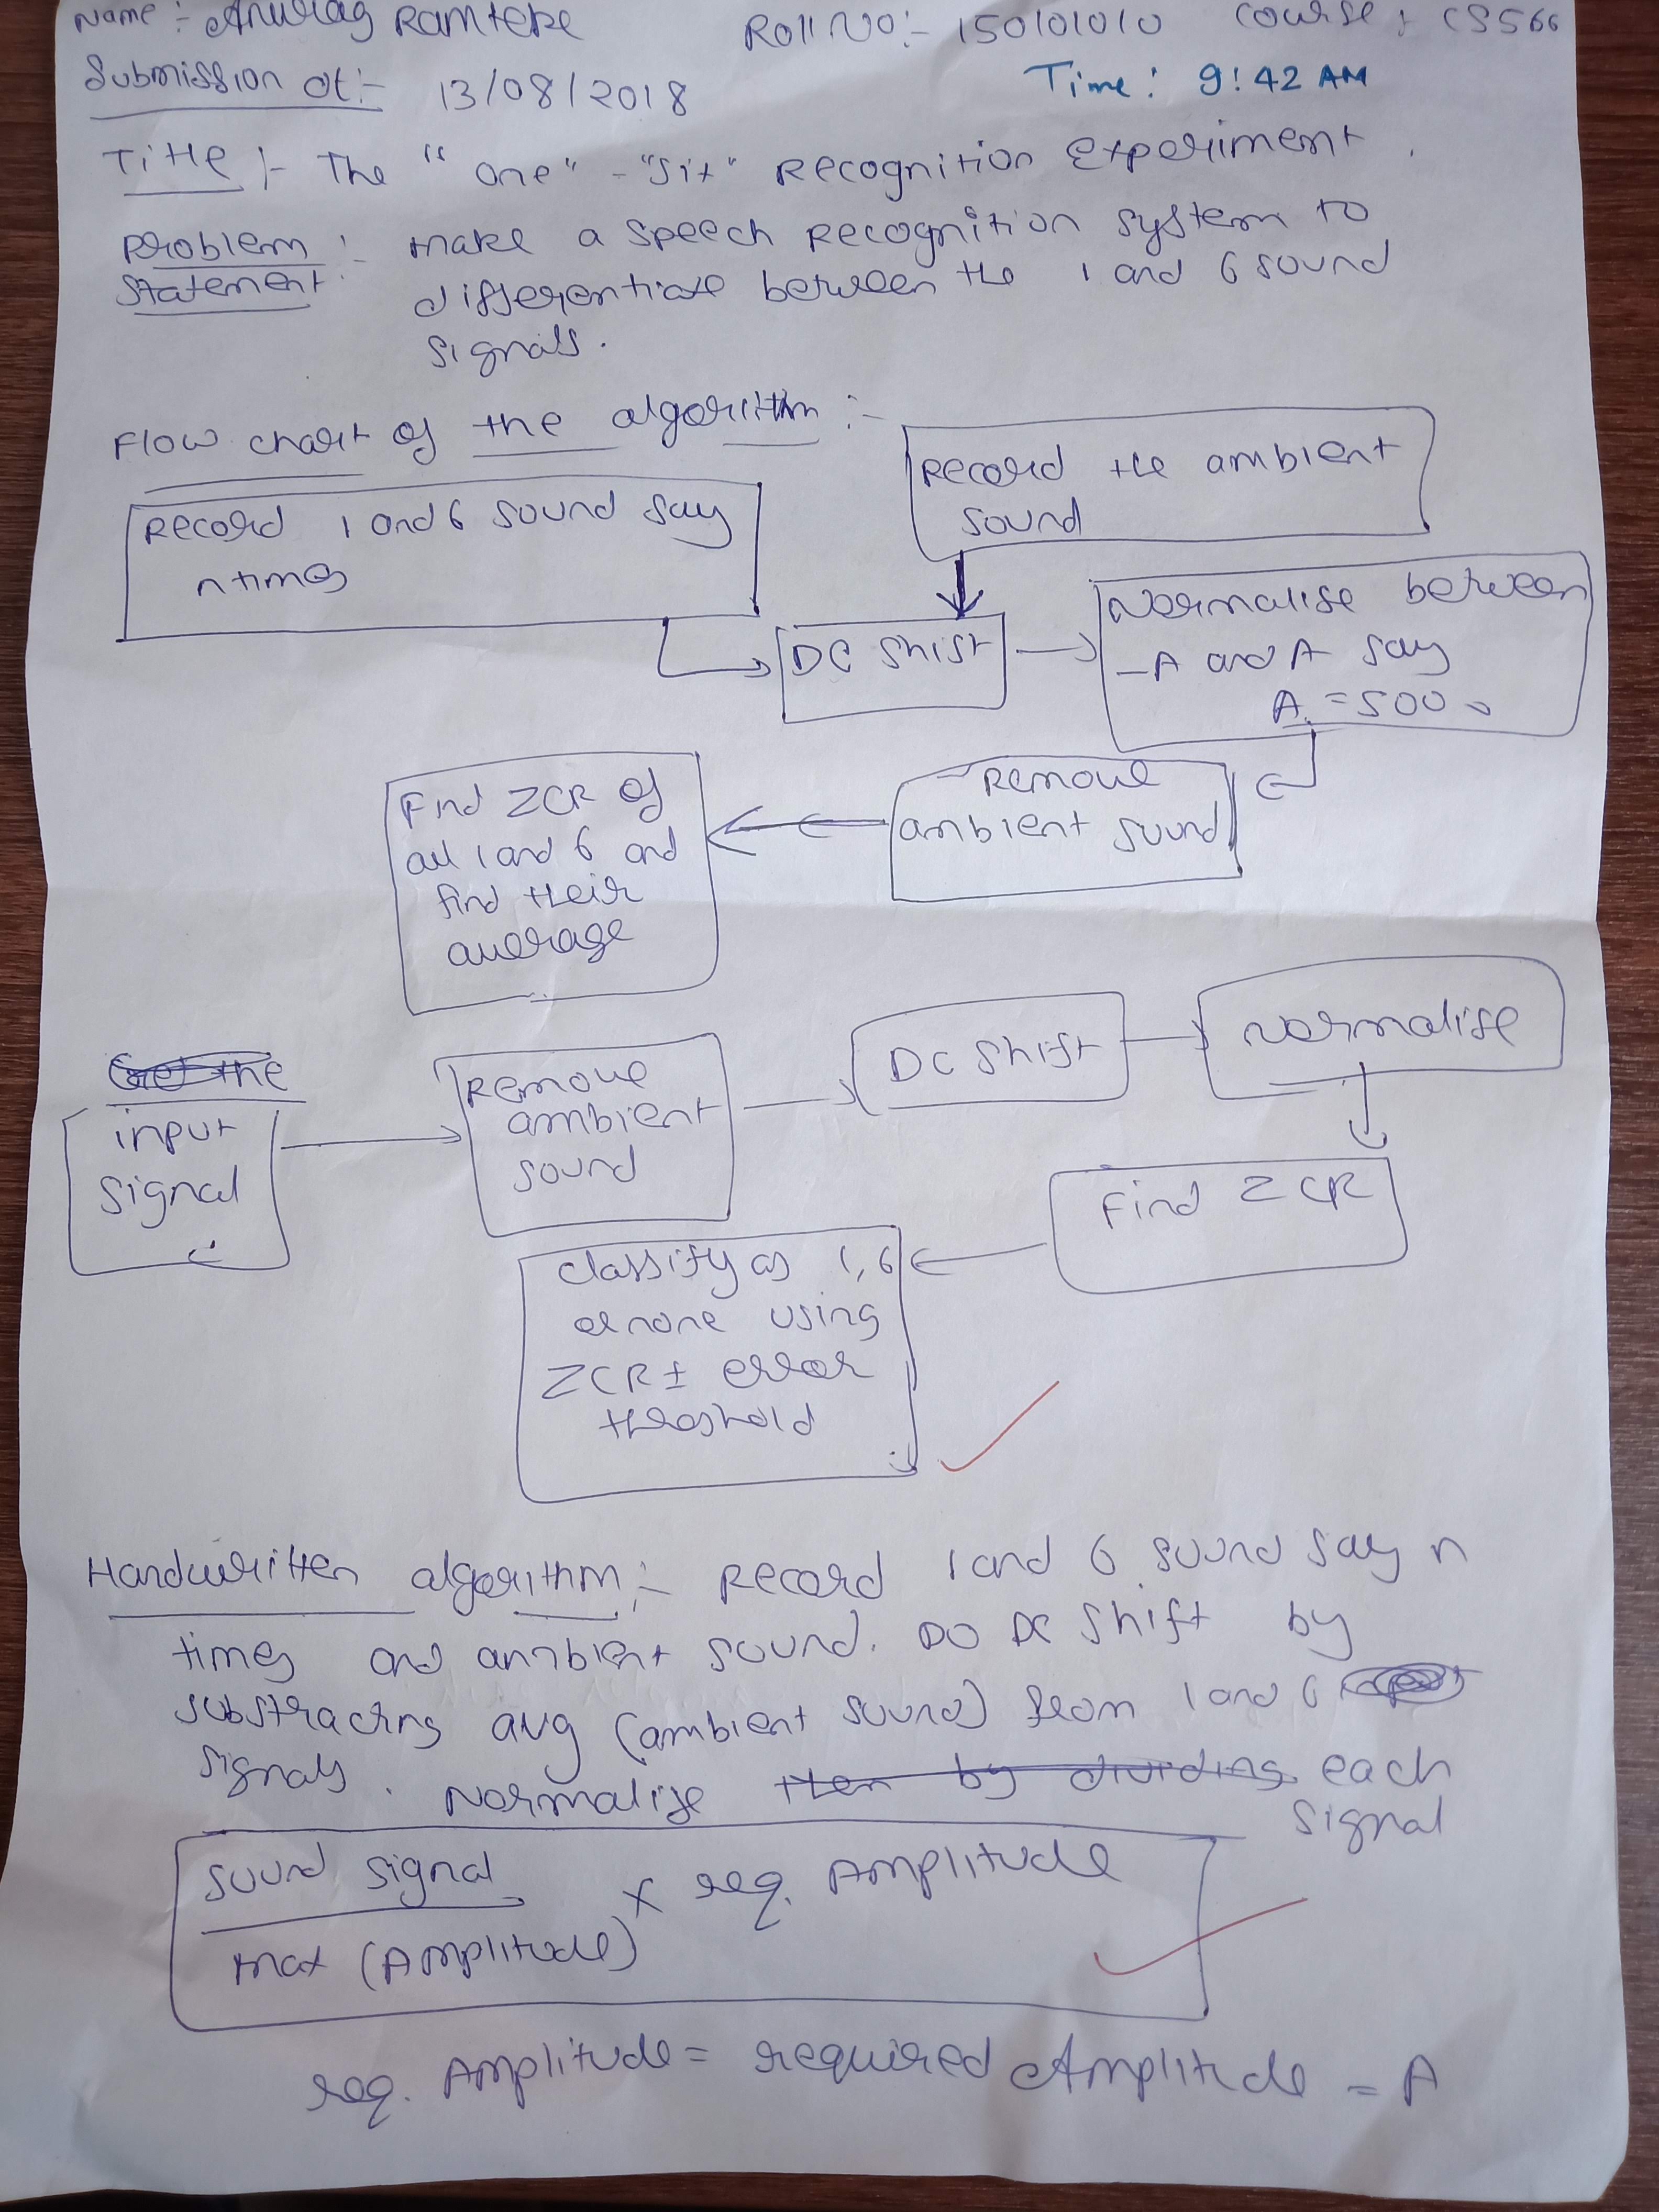 Name :- Anurag Ramteke Roll No:- 150101010 Course : CS566
Submission at:- 13/08/2018 Time : 9:42 AM
Title :- The "one" - "six" Recognition Experiment.
Problem Statement :- Make a speech recognition system to
differentiate between the 1 and 6 sound
signals.
Flow chart of the algorithm :-
Record the ambient
sound
Record 1 and 6 sound say
n times
DC shift
Normalise between
-A and A say
A = 5000
Remove
ambient sound
Find ZCR of
all 1 and 6 and
find their
average
Get the
input
signal
Remove
ambient
sound
DC shift
Normalise
Find ZCR
Classify as 1, 6
or none using
ZCR ± error
threshold
Handwritten algorithm :- Record 1 and 6 sound say n
times and ambient sound. DO DC shift by
substracting avg (ambient sound) from 1 and 6
signals. Normalise then by dividing each
signal
sound signal
max (Amplitude) x req. Amplitude
req. Amplitude = required Amplitude = A